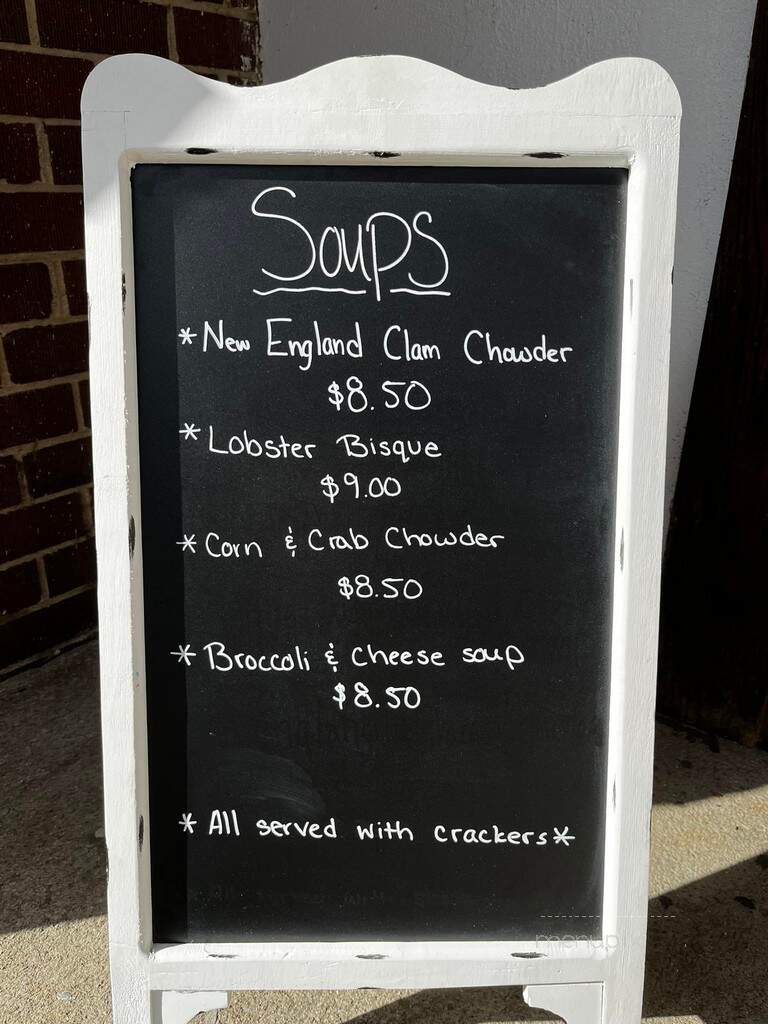 Soups
*New England Clam Chowder
$8.50
*Lobster Bisque
$9.00
*Corn & Crab Chowder
$8.50
*Broccoli & Cheese soup
$8.50
*All served with crackers*
menup